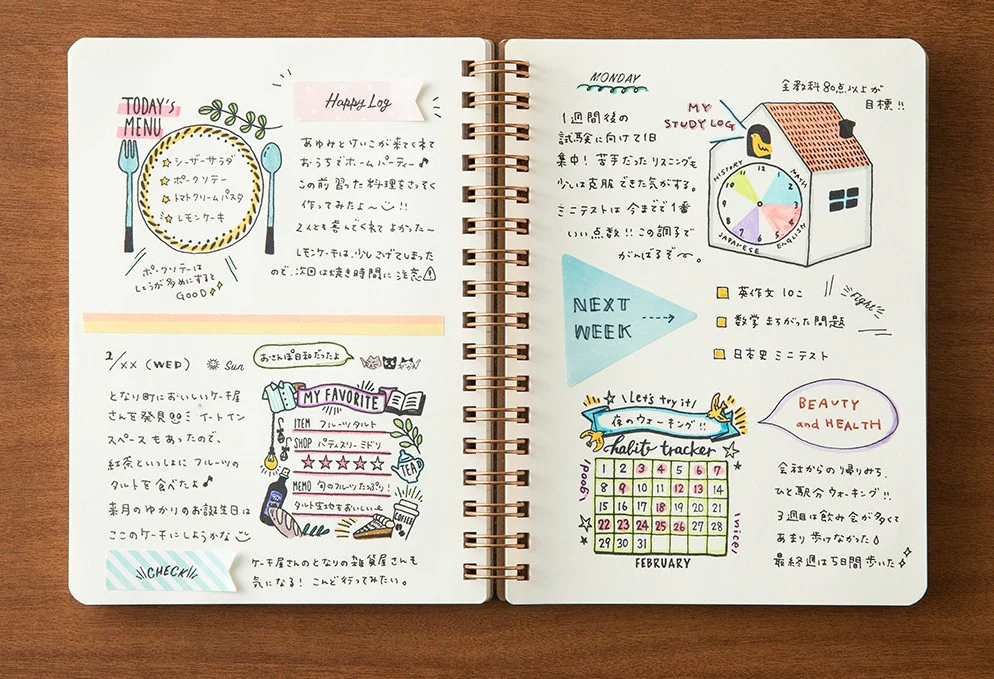 TODAY's
MENU
シーザーサラダ
ポークソテー
トマトクリームパスタ
レモンケーキ
ポークソテーは
しょうが多めにすると
GOOD
Happy Log
あゆみとけいこが来てくれて
おうちでホームパーティー♪
この前習った料理をさっそく
作ってみたよ〜!!
2人とも喜んでくれてよかった〜
レモンケーキは、少しこげてしまった
ので、次回は焼き時間に注意
2/××(WED)
Sun
おさんぽ日和だったよ
となり町においしいケーキ屋
さんを発見!! イートイン
スペースもあったので、
紅茶といっしょにフルーツの
タルトを食べたよ♪
来月のゆかりのお誕生日は
ここのケーキにしようかな
MY FAVORITE
ITEM フルーツタルト
SHOP パティスリーミドリ
★★★★☆
MEMO 旬のフルーツたっぷり!
タルト生地もおいしい
TEA
COFFEE
CHECK
ケーキ屋さんのとなりの雑貨屋さんも
気になる! こんど行ってみたい。
MONDAY
1週間後の
試験に向けて1日
集中! 苦手だったリスニングも
少しは克服できた気がする。
ミニテストは今までで1番
いい点数!! この調子で
がんばるぞ〜。
全教科80点以上が
目標!!
MY
STUDY LOG
HISTORY
MATH
ENGLISH
JAPANESE
12
1
2
3
4
5
6
7
8
9
10
11
NEXT
WEEK
英作文 10こ
数学 まちがった問題
日本史 ミニテスト
Fight
Let's try it!
夜のウォーキング!!
habits tracker
good!
nice!
1 2 3 4 5 6 7
8 9 10 11 12 13 14
15 16 17 18 19 20 21
22 23 24 25 26 27 28
29 30 31
FEBRUARY
BEAUTY
and HEALTH
会社からの帰りみち、
ひと駅分ウォーキング!!
3週目は飲み会が多くて
あまり歩けなかった
最終週は5日間歩いた